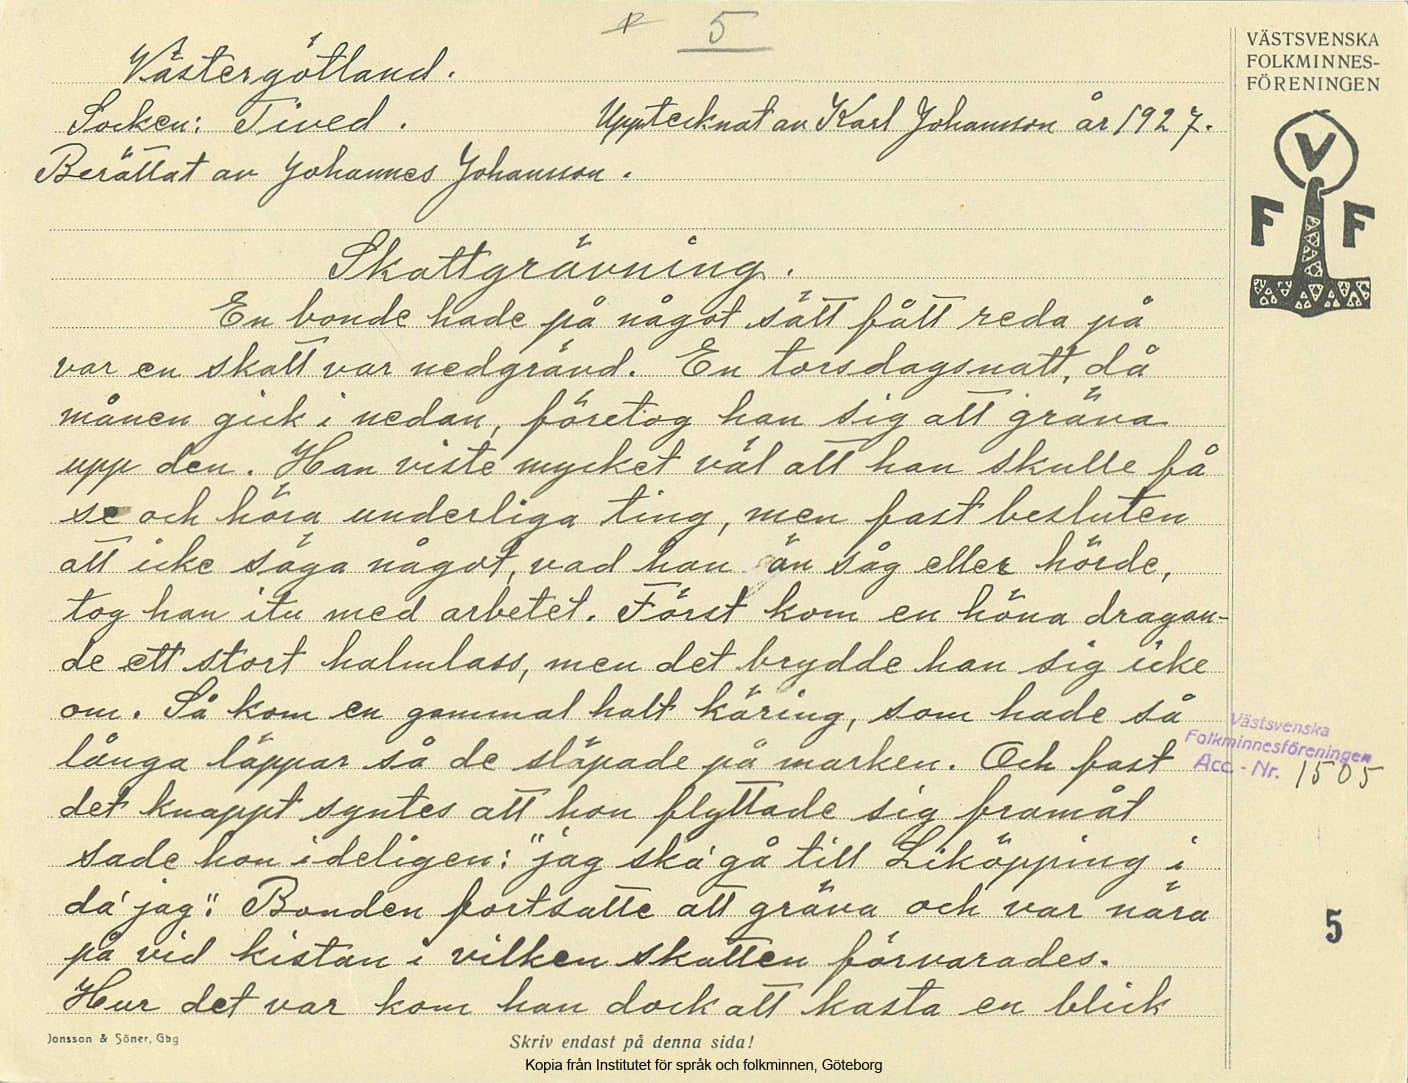 5
Västergötland.
Socken: Tived.
Upptecknat av Karl Johansson år 1927.
Berättat av Johannes Johansson.
Skattgrävning.
En bonde hade på något sätt fått reda på
var en skatt var nedgrävd. En torsdagsnatt, då
månen gick i nedan, företog han sig att gräva
upp den. Han viste mycket väl att han skulle få
se och höra underliga ting, men fast besluten
att icke säga något, vad han än såg eller hörde,
tog han itu med arbetet. Först kom en höna dragan-
de ett stort halmlass, men det brydde han sig icke
om. Så kom en gammal halt käring, som hade så
långa läppar så de släpade på marken. Och fast
det knappt syntes att hon flyttade sig framåt
sade hon ideligen: "jag ska' gå till Liköpping i
da' jag". Bonden fortsatte att gräva och var nära
på vid kistan i vilken skatten förvarades.
Hur det var kom han dock att kasta en blick
Jonsson & Söner, Gbg
Skriv endast på denna sida!
Kopia från Institutet för språk och folkminnen, Göteborg
VÄSTSVENSKA
FOLKMINNES-
FÖRENINGEN
V
F F
Västsvenska
Folkminnesföreningen
Acc. - Nr. 1505
5